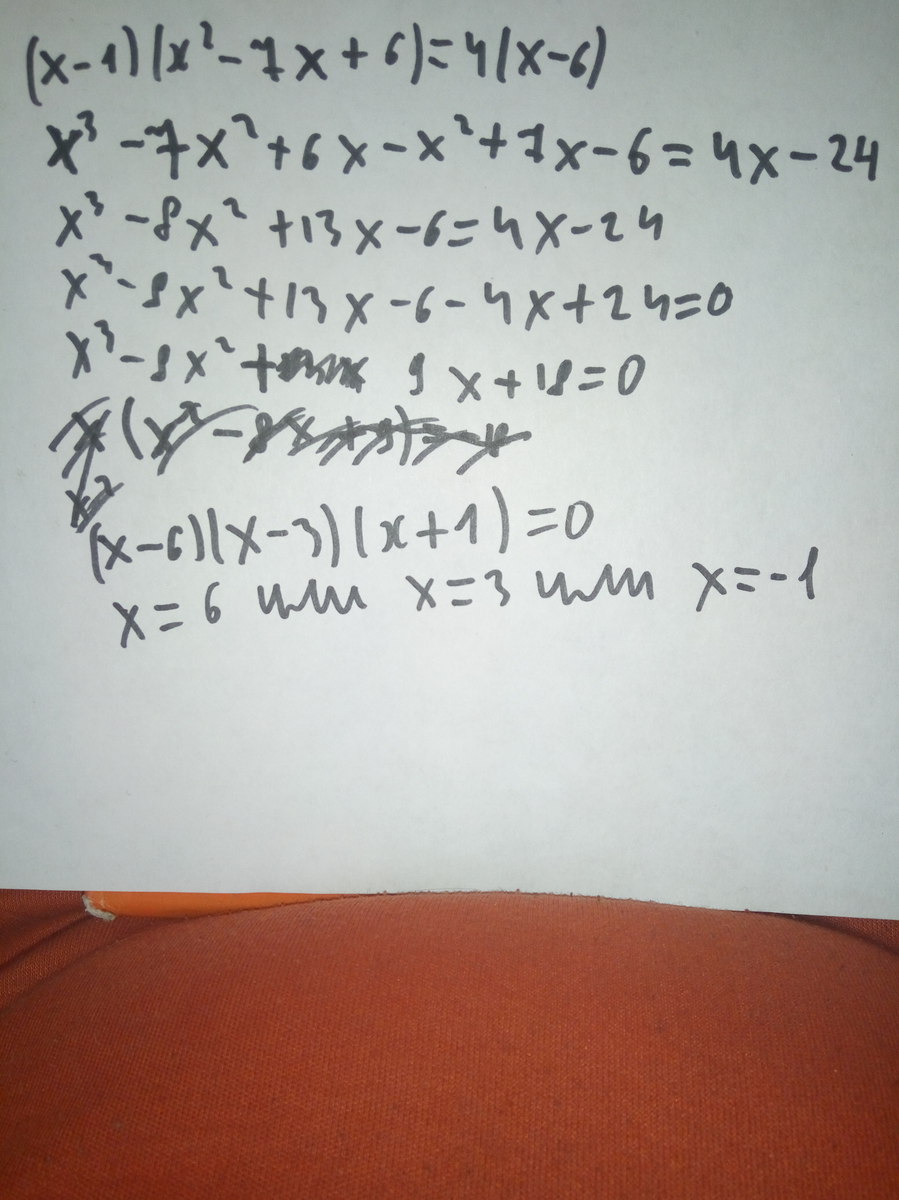 (x-1)(x²-7x+6)=4(x-6)
x³-7x²+6x-x²+7x-6=4x-24
x³-8x²+13x-6=4x-24
x³-8x²+13x-6-4x+24=0
x³-8x²+ 9x+18=0
(x-6)(x-3)(x+1)=0
x=6 или x=3 или x=-1